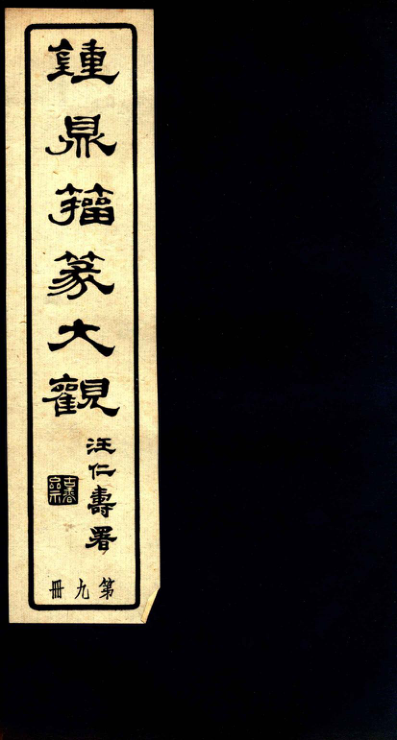 鐘鼎籀篆大觀
汪仁壽署
第九冊